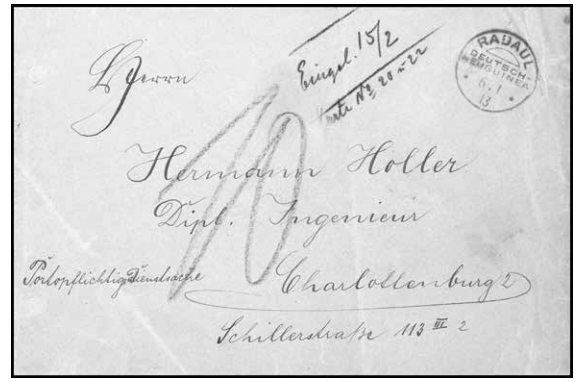 Eingel. 15/2
Karte № 20 u 22
RABAUL
DEUTSCH-
NEUGUINEA
* 6.1 *
13
Herrn
Hermann Holler
Dipl. Ingenieur
10
Portopflichtige Dienstsache
Charlottenburg 2
Schillerstraße 113 III 2